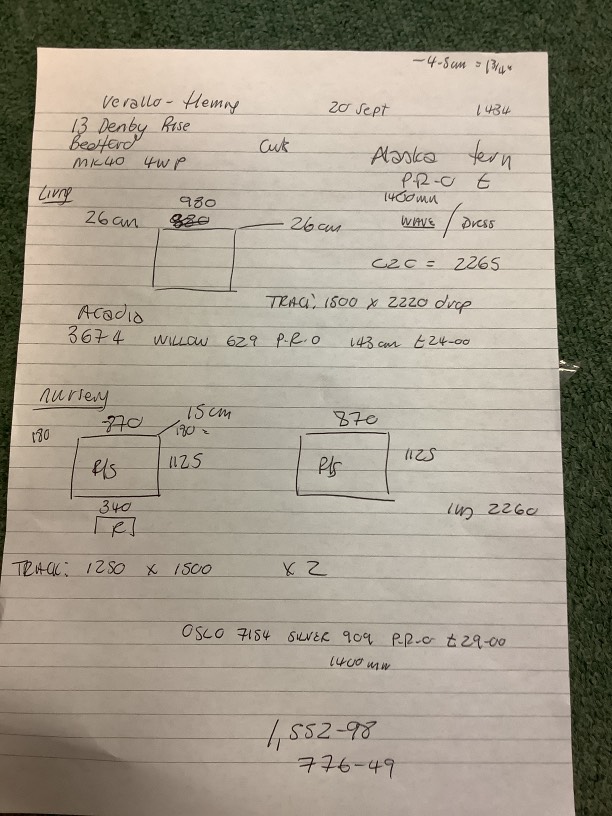 -4-8cm = 1 3/4"
Verallo-Fleming 20 Sept 1434
13 Denby Rise
Bedford
MK40 4WP
Alaska fern
P.R.O £
1400mm
WAVE / Dress
C2C = 2265
Living
980
26cm 26cm
TRACK: 1800 x 2220 drop
Acadia
3674 WILLOW 629 P.R.O 143cm £24-00
Nursery
870 15cm 870
180 180
R/S 1125 R/S 1125
340
R
2260
TRACK: 1250 x 1500 x 2
OSLO 7154 SILVER 909 P.R.O £29-00
1400mm
1,552-98
776-49